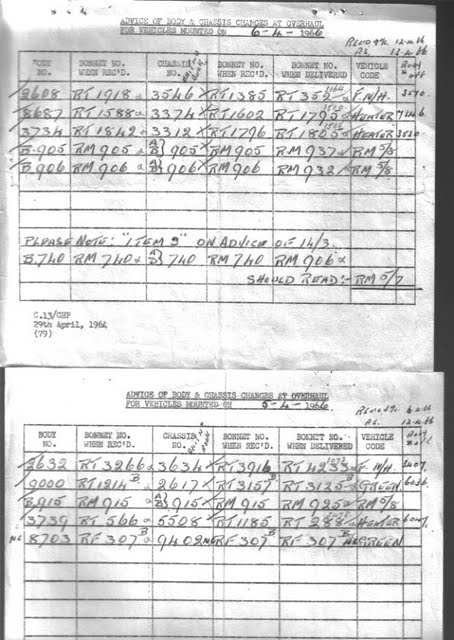 ADVICE OF BODY & CHASSIS CHANGES AT OVERHAUL
FOR VEHICLES MOUNTED ON 6-4-1966
12.4.66
BODY NO. BONNET NO. WHEN REC'D. CHASSIS NO. BONNET NO. WHEN REC'D. BONNET NO. WHEN DELIVERED VEHICLE CODE
2608 RT 1918 3546 RT 1385 F.N/H.
8687 RT 1588 3374 RT 1602 RT 1795 HEATER
3734 RT 1842 3312 RT 1796 HEATER
B.905 RM 905 905 RM 905 RM 937 RM 5/8
B.906 RM 906 906 RM 906 RM 932 RM 5/8
PLEASE NOTE: "ITEM 9" ON ADVICE OF 14/3.
B.740 RM 740 740 RM 740 RM 906
SHOULD READ:- RM 5/7
C.13/CHP
29th April, 1964
(79)
ADVICE OF BODY & CHASSIS CHANGES AT OVERHAUL
FOR VEHICLES MOUNTED ON 5-4-1966
BODY NO. BONNET NO. WHEN REC'D. CHASSIS NO. BONNET NO. WHEN REC'D. BONNET NO. WHEN DELIVERED VEHICLE CODE
2632 RT 3266 3634 RT 3916 RT 4233 F.N/H
9000 RT 1214 B 2617 RT 3157 B RT 3125 B GREEN
B.915 RM 915 915 RM 915 RM 925 RM 5/8
3739 RT 566 5508 RT 1185 HEATER
8703 RF 307 B 9402 RF 307 B RF 307 B GREEN